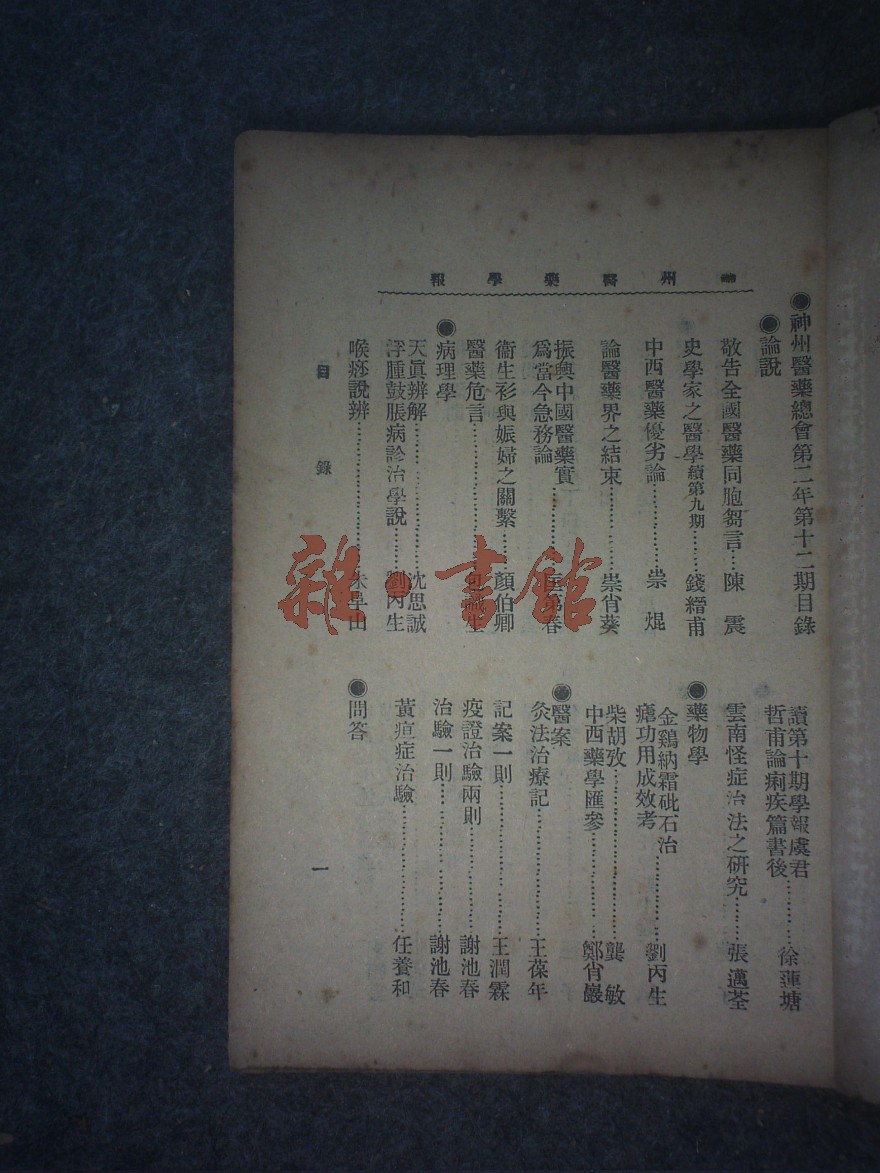 神州醫藥學報
●神州醫藥總會第二年第十二期目錄
●論說
敬告全國醫藥同胞芻言……陳 震
史學家之醫學續第九期……錢縉甫
中西醫藥優劣論……崇 焜
論醫藥界之結束……崇肖葵
振興中國醫藥實
爲當今急務論……第春
衛生衫與娠婦之關繫……顏伯卿
醫藥危言……包識生
●病理學
天眞辨解……沈思誠
浮腫鼓脹病診治學說……劉丙生
喉痧說辨……朱阜山
讀第十期學報虞君
哲甫論痢疾篇書後……徐蓮塘
雲南怪症治法之研究……張邁荃
●藥物學
金鷄納霜砒石治
瘧功用成效考……劉丙生
柴胡攷……龔 敏
中西藥學匯參……鄭肖巖
●醫案
灸法治療記……王葆年
記案一則……王潤霖
疫證治驗兩則……謝池春
治驗一則……謝池春
黃疸症治驗……任養和
●問答
目 錄
一
雜·書館